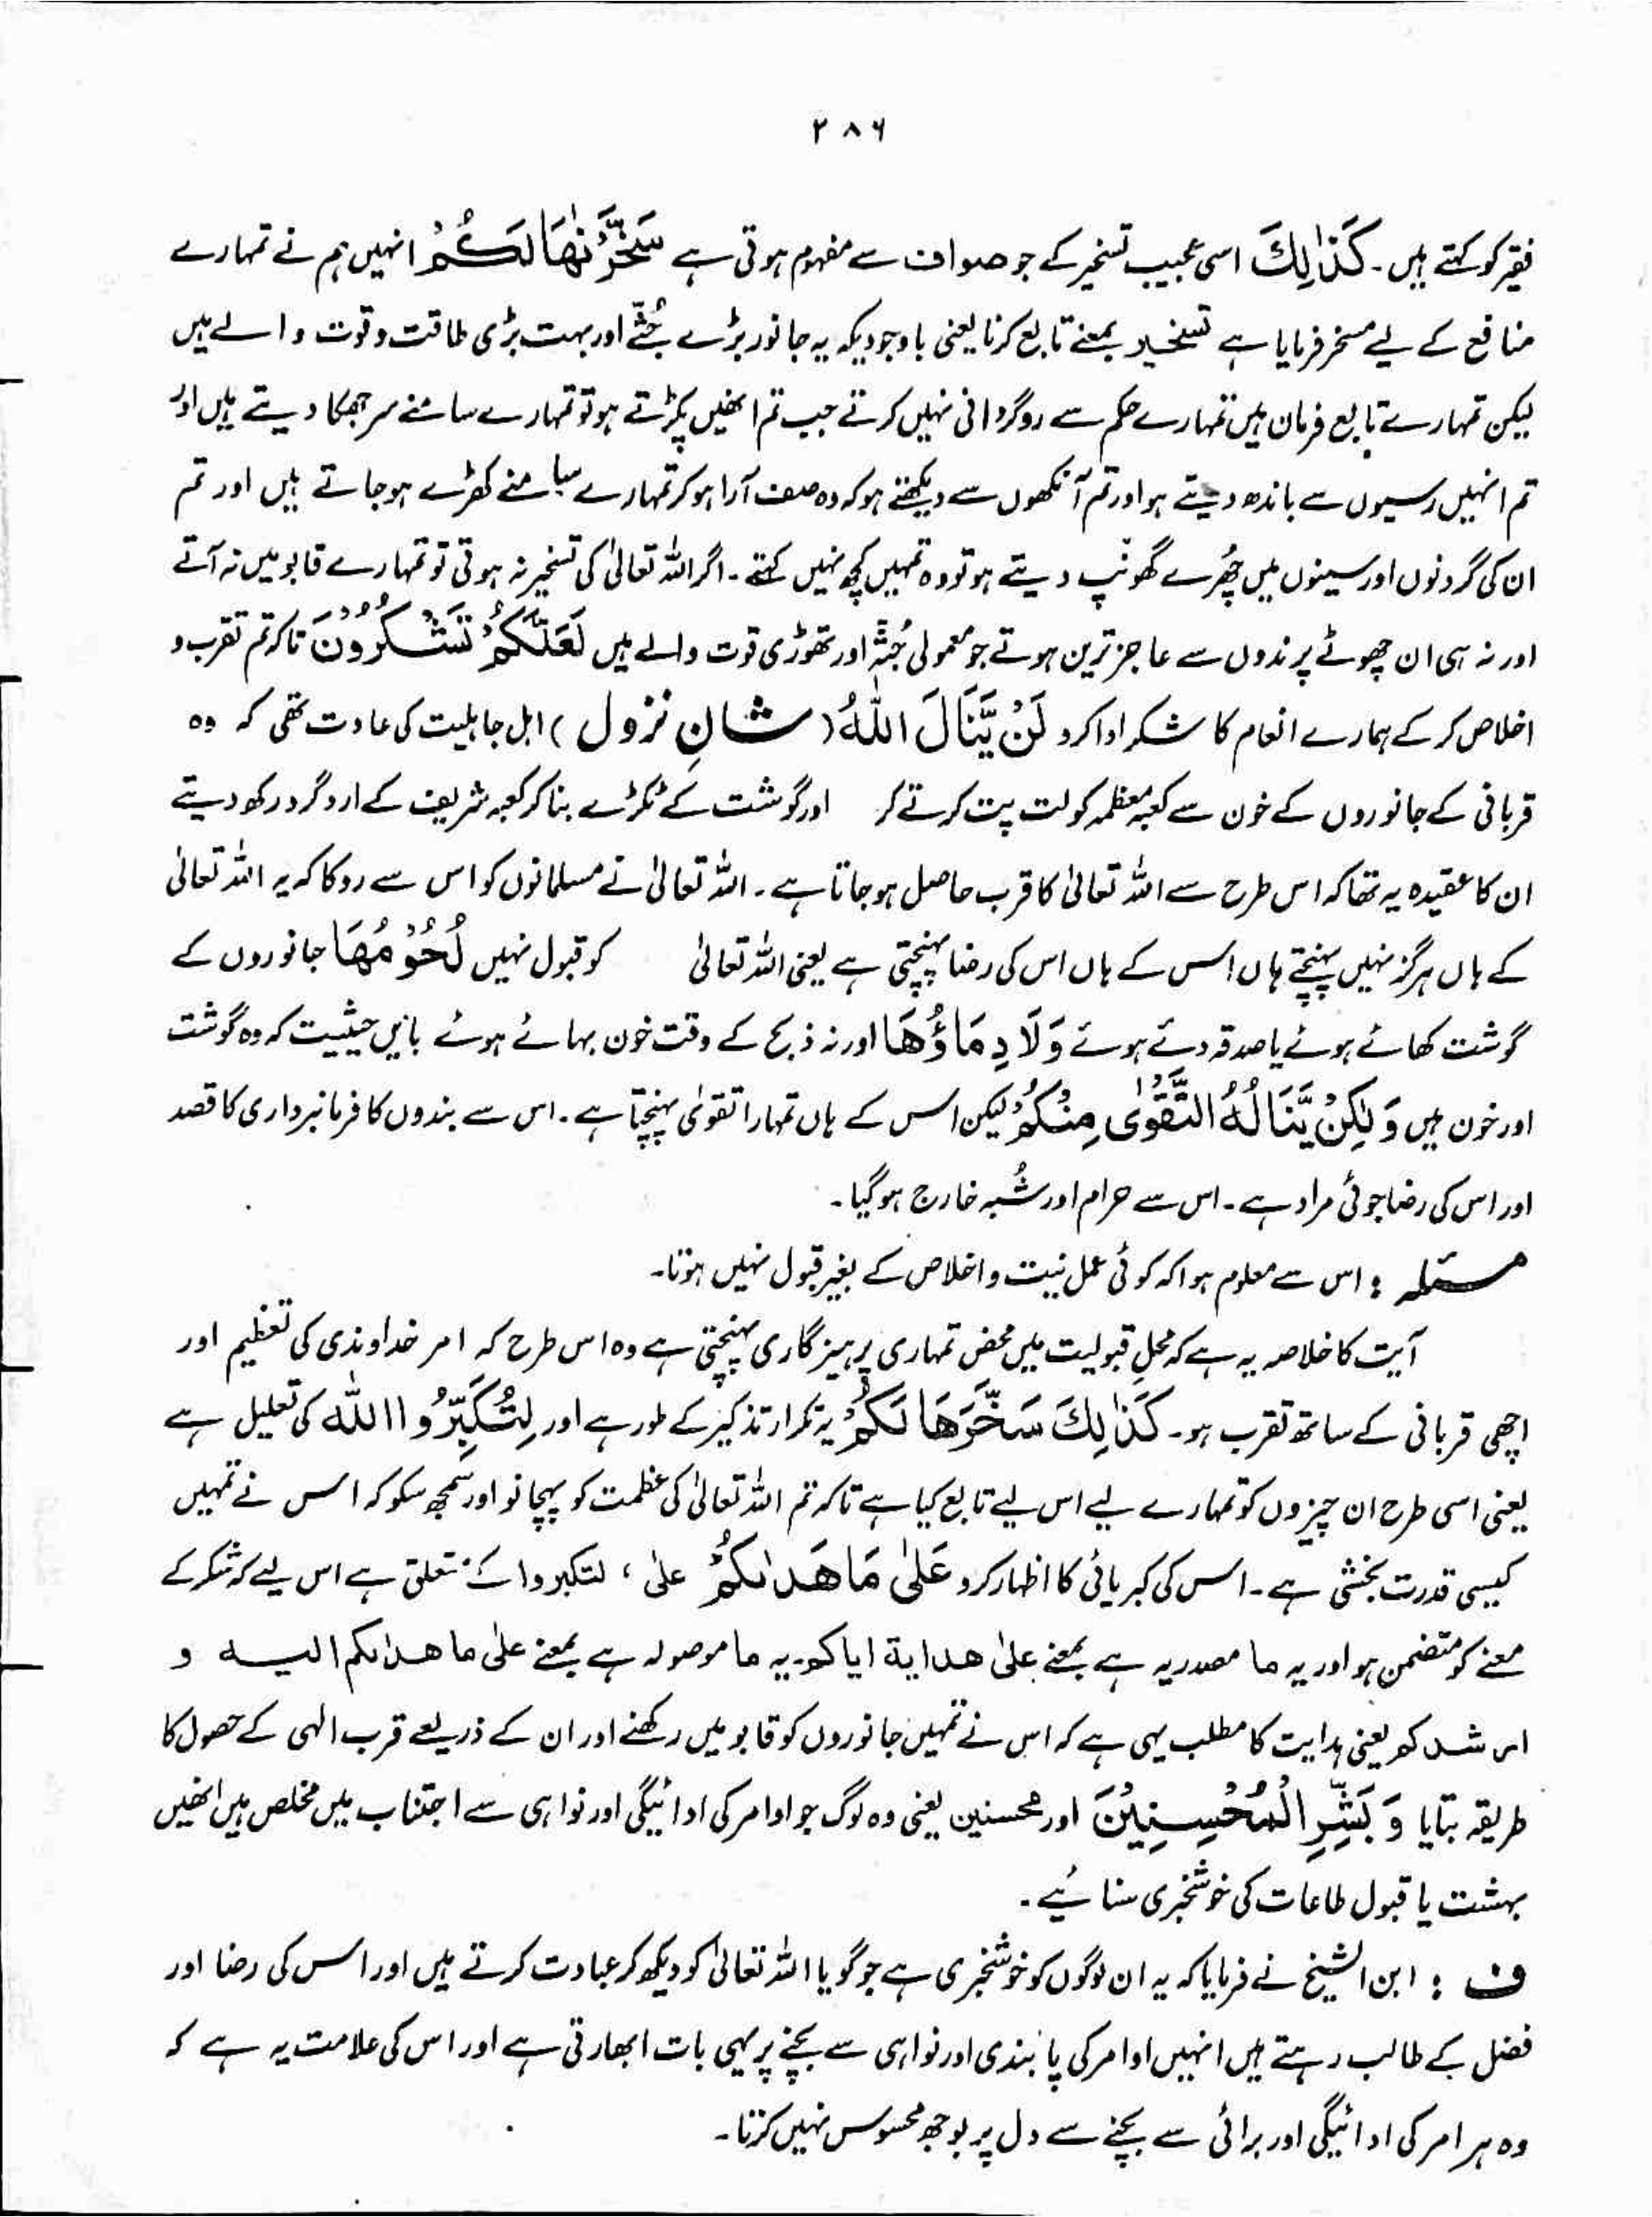 ۲۸۶
فقیر کو کہتے ہیں۔ كَذٰلِكَ اسی عجیب تسخیر کے جو صواف سے مفہوم ہوتی ہے سَخَّرْنٰهَا لَكُمْ انہیں ہم نے تمہارے
منافع کے لیے مسخر فرمایا ہے تسخیر بمعنے تابع کرنا یعنی باوجودیکہ یہ جانور بڑے جُثّے اور بہت بڑی طاقت و قوت والے ہیں
لیکن تمہارے تابع فرمان ہیں تمہارے حکم سے روگردانی نہیں کرتے جب تم انھیں پکڑتے ہو تو تمہارے سامنے سر جھکا دیتے ہیں اور
تم انہیں رسیوں سے باندھ دیتے ہو اور تم آنکھوں سے دیکھتے ہو کہ وہ صف آرا ہو کر تمہارے سامنے کھڑے ہو جاتے ہیں اور تم
ان کی گردنوں اور سینوں میں چُھرے گھونپ دیتے ہو تو وہ تمہیں کچھ نہیں کہتے۔ اگر اللہ تعالیٰ کی تسخیر نہ ہوتی تو تمہارے قابو میں نہ آتے
اور نہ ہی ان چھوٹے پرندوں سے عاجز ترین ہوتے جو معمولی جُثّہ اور تھوڑی قوت والے ہیں لَعَلَّكُمْ تَشْكُرُوْنَ تاکہ تم تقرب و
اخلاص کر کے ہمارے انعام کا شکر ادا کرو لَنْ يَّنَالَ اللّٰهُ (شانِ نزول) اہل جاہلیت کی عادت تھی کہ وہ
قربانی کے جانوروں کے خون سے کعبہ معظمہ کو لت پت کرتے کر اور گوشت کے ٹکڑے بنا کر کعبہ شریف کے ارد گرد رکھ دیتے
ان کا عقیدہ یہ تھا کہ اس طرح سے اللہ تعالیٰ کا قرب حاصل ہو جاتا ہے۔ اللہ تعالیٰ نے مسلمانوں کو اس سے روکا کہ یہ اللہ تعالیٰ
کے ہاں ہرگز نہیں پہنچتے ہاں اس کے ہاں اس کی رضا پہنچتی ہے یعنی اللہ تعالیٰ کو قبول نہیں لُحُوْمُهَا جانوروں کے
گوشت کھائے ہوئے یا صدقہ دئے ہوئے وَلَا دِمَاؤُهَا اور نہ ذبح کے وقت خون بہائے ہوئے بایں حیثیت کہ وہ گوشت
اور خون ہیں وَلٰكِنْ يَّنَالُهُ التَّقْوٰى مِنْكُمْ لیکن اس کے ہاں تمہارا تقویٰ پہنچتا ہے۔ اس سے بندوں کا فرمانبرداری کا قصد
اور اس کی رضا جوئی مراد ہے۔ اس سے حرام اور شُبہ خارج ہو گیا۔
مسئلہ : اس سے معلوم ہوا کہ کوئی عمل نیت و اخلاص کے بغیر قبول نہیں ہوتا۔
آیت کا خلاصہ یہ ہے کہ محلِ قبولیت میں محض تمہاری پرہیزگاری پہنچتی ہے وہ اس طرح کہ امر خداوندی کی تعظیم اور
اچھی قربانی کے ساتھ تقرب ہو۔ كَذٰلِكَ سَخَّرَهَا لَكُمْ یہ تکرار تذکیر کے طور ہے اور لِتُكَبِّرُوا اللّٰهَ کی تعلیل ہے
یعنی اسی طرح ان چیزوں کو تمہارے لیے اس لیے تابع کیا ہے تاکہ تم اللہ تعالیٰ کی عظمت کو پہچانو اور سمجھ سکو کہ اس نے تمہیں
کیسی قدرت بخشی ہے۔ اس کی کبریائی کا اظہار کرو عَلٰى مَا هَدٰىكُمْ علیٰ ، لتکبروا کے متعلق ہے اس لیے کہ شکر کے
معنے کو متضمن ہو اور یہ ما مصدریہ ہے بمعنے علیٰ ھدایۃ ایاکم۔ یہ ما موصولہ ہے بمعنے علیٰ ما ھداکم الیہ و
ارشدکم یعنی ہدایت کا مطلب یہی ہے کہ اس نے تمہیں جانوروں کو قابو میں رکھنے اور ان کے ذریعے قرب الٰہی کے حصول کا
طریقہ بتایا وَبَشِّرِ الْمُحْسِنِيْنَ اور محسنین یعنی وہ لوگ جو اوامر کی ادائیگی اور نواہی سے اجتناب میں مخلص ہیں انھیں
بہشت یا قبول طاعات کی خوشخبری سنائیے۔
ف : ابن الشیخ نے فرمایا کہ یہ ان لوگوں کو خوشخبری ہے جو گویا اللہ تعالیٰ کو دیکھ کر عبادت کرتے ہیں اور اس کی رضا اور
فضل کے طالب رہتے ہیں انہیں اوامر کی پابندی اور نواہی سے بچنے پر یہی بات ابھارتی ہے اور اس کی علامت یہ ہے کہ
وہ ہر امر کی ادائیگی اور برائی سے بچنے سے دل پر بوجھ محسوس نہیں کرتا۔